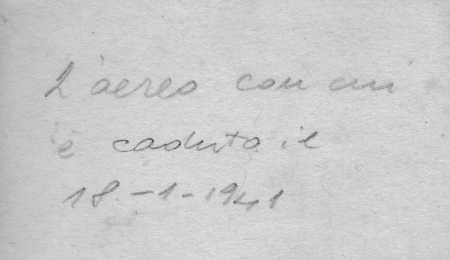 L'aereo con cui
è caduto il
18-1-1941